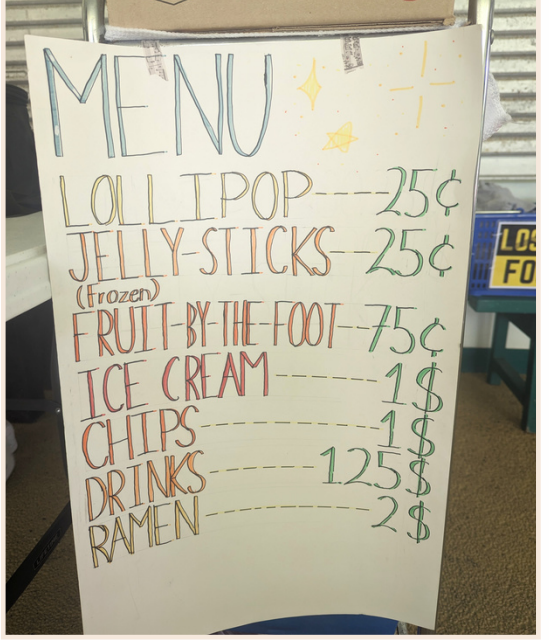 MENU
LOLLIPOP----25¢
JELLY-STICKS--25¢
(Frozen)
FRUIT-BY-THE-FOOT--75¢
ICE CREAM------1$
CHIPS----------1$
DRINKS------125$
RAMEN----------2$
LOS
FO